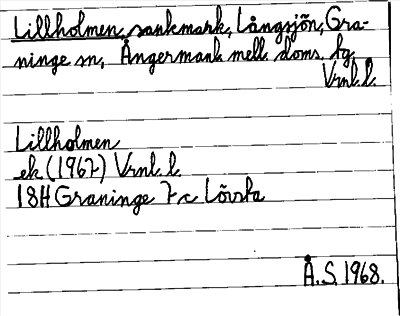 Lillholmen, sankmark, Långsjön, Gra-
ninge sn, Ångermanl. mell. doms. fg
Vrnl. l.
Lillholmen
ek (1967) Vrnl. l.
18H Graninge 7 c Lövsta
Å.S. 1968.